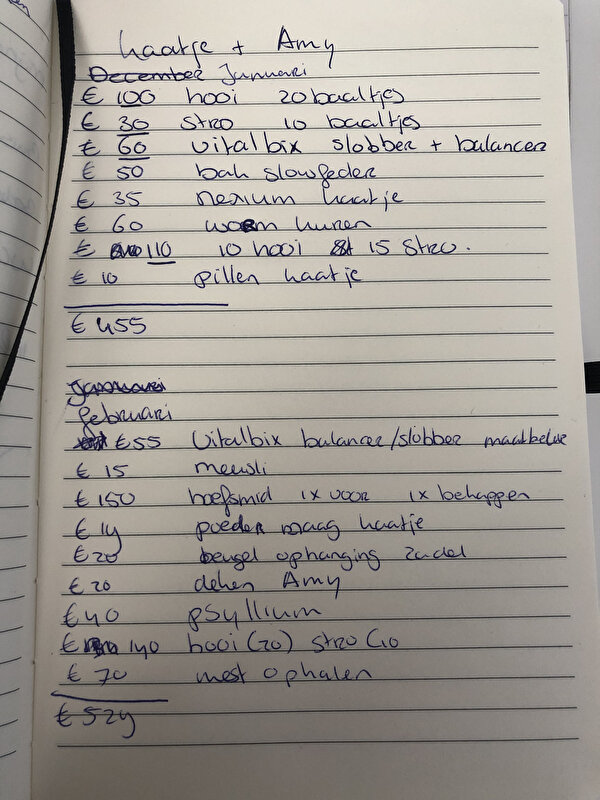 haatje + Amy
December Januari
€ 100 hooi 20 baaltjes
€ 30 stro 10 baaltjes
€ 60 vitalbix slobber + balancer
€ 50 bak slowfeder
€ 35 nexium haatje
€ 60 worm kuren
€ 110 10 hooi 15 stro.
€ 10 pillen haatje
€ 455
Januari
februari
€ 55 Vitalbix balancer/slobber
€ 15 meusli
€ 150 hoefsmid 1x voor 1x behappen
€ 14 poeder maag haatje
€ 20 beugel ophanging zadel
€ 20 deken Amy
€ 40 psyllium
€ 140 hooi (20) stro (10
€ 70 mest ophalen
€ 524